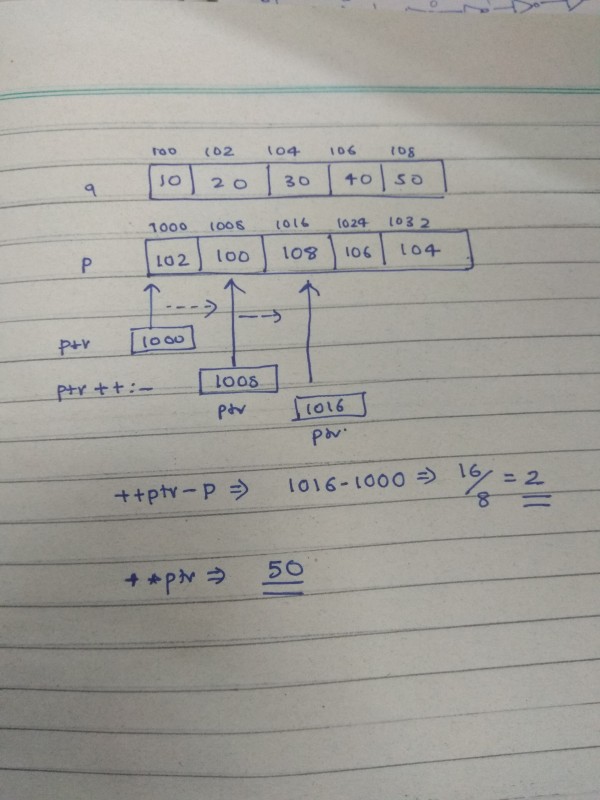 100 102 104 106 108
a 10 20 30 40 50
1000 1008 1016 1024 1032
P 102 100 108 106 104
ptr 1000
ptr ++ :- 1008
ptr
1016
ptr.
++ptr-P ⇒ 1016-1000 ⇒ 16/8 = 2
**ptr ⇒ 50